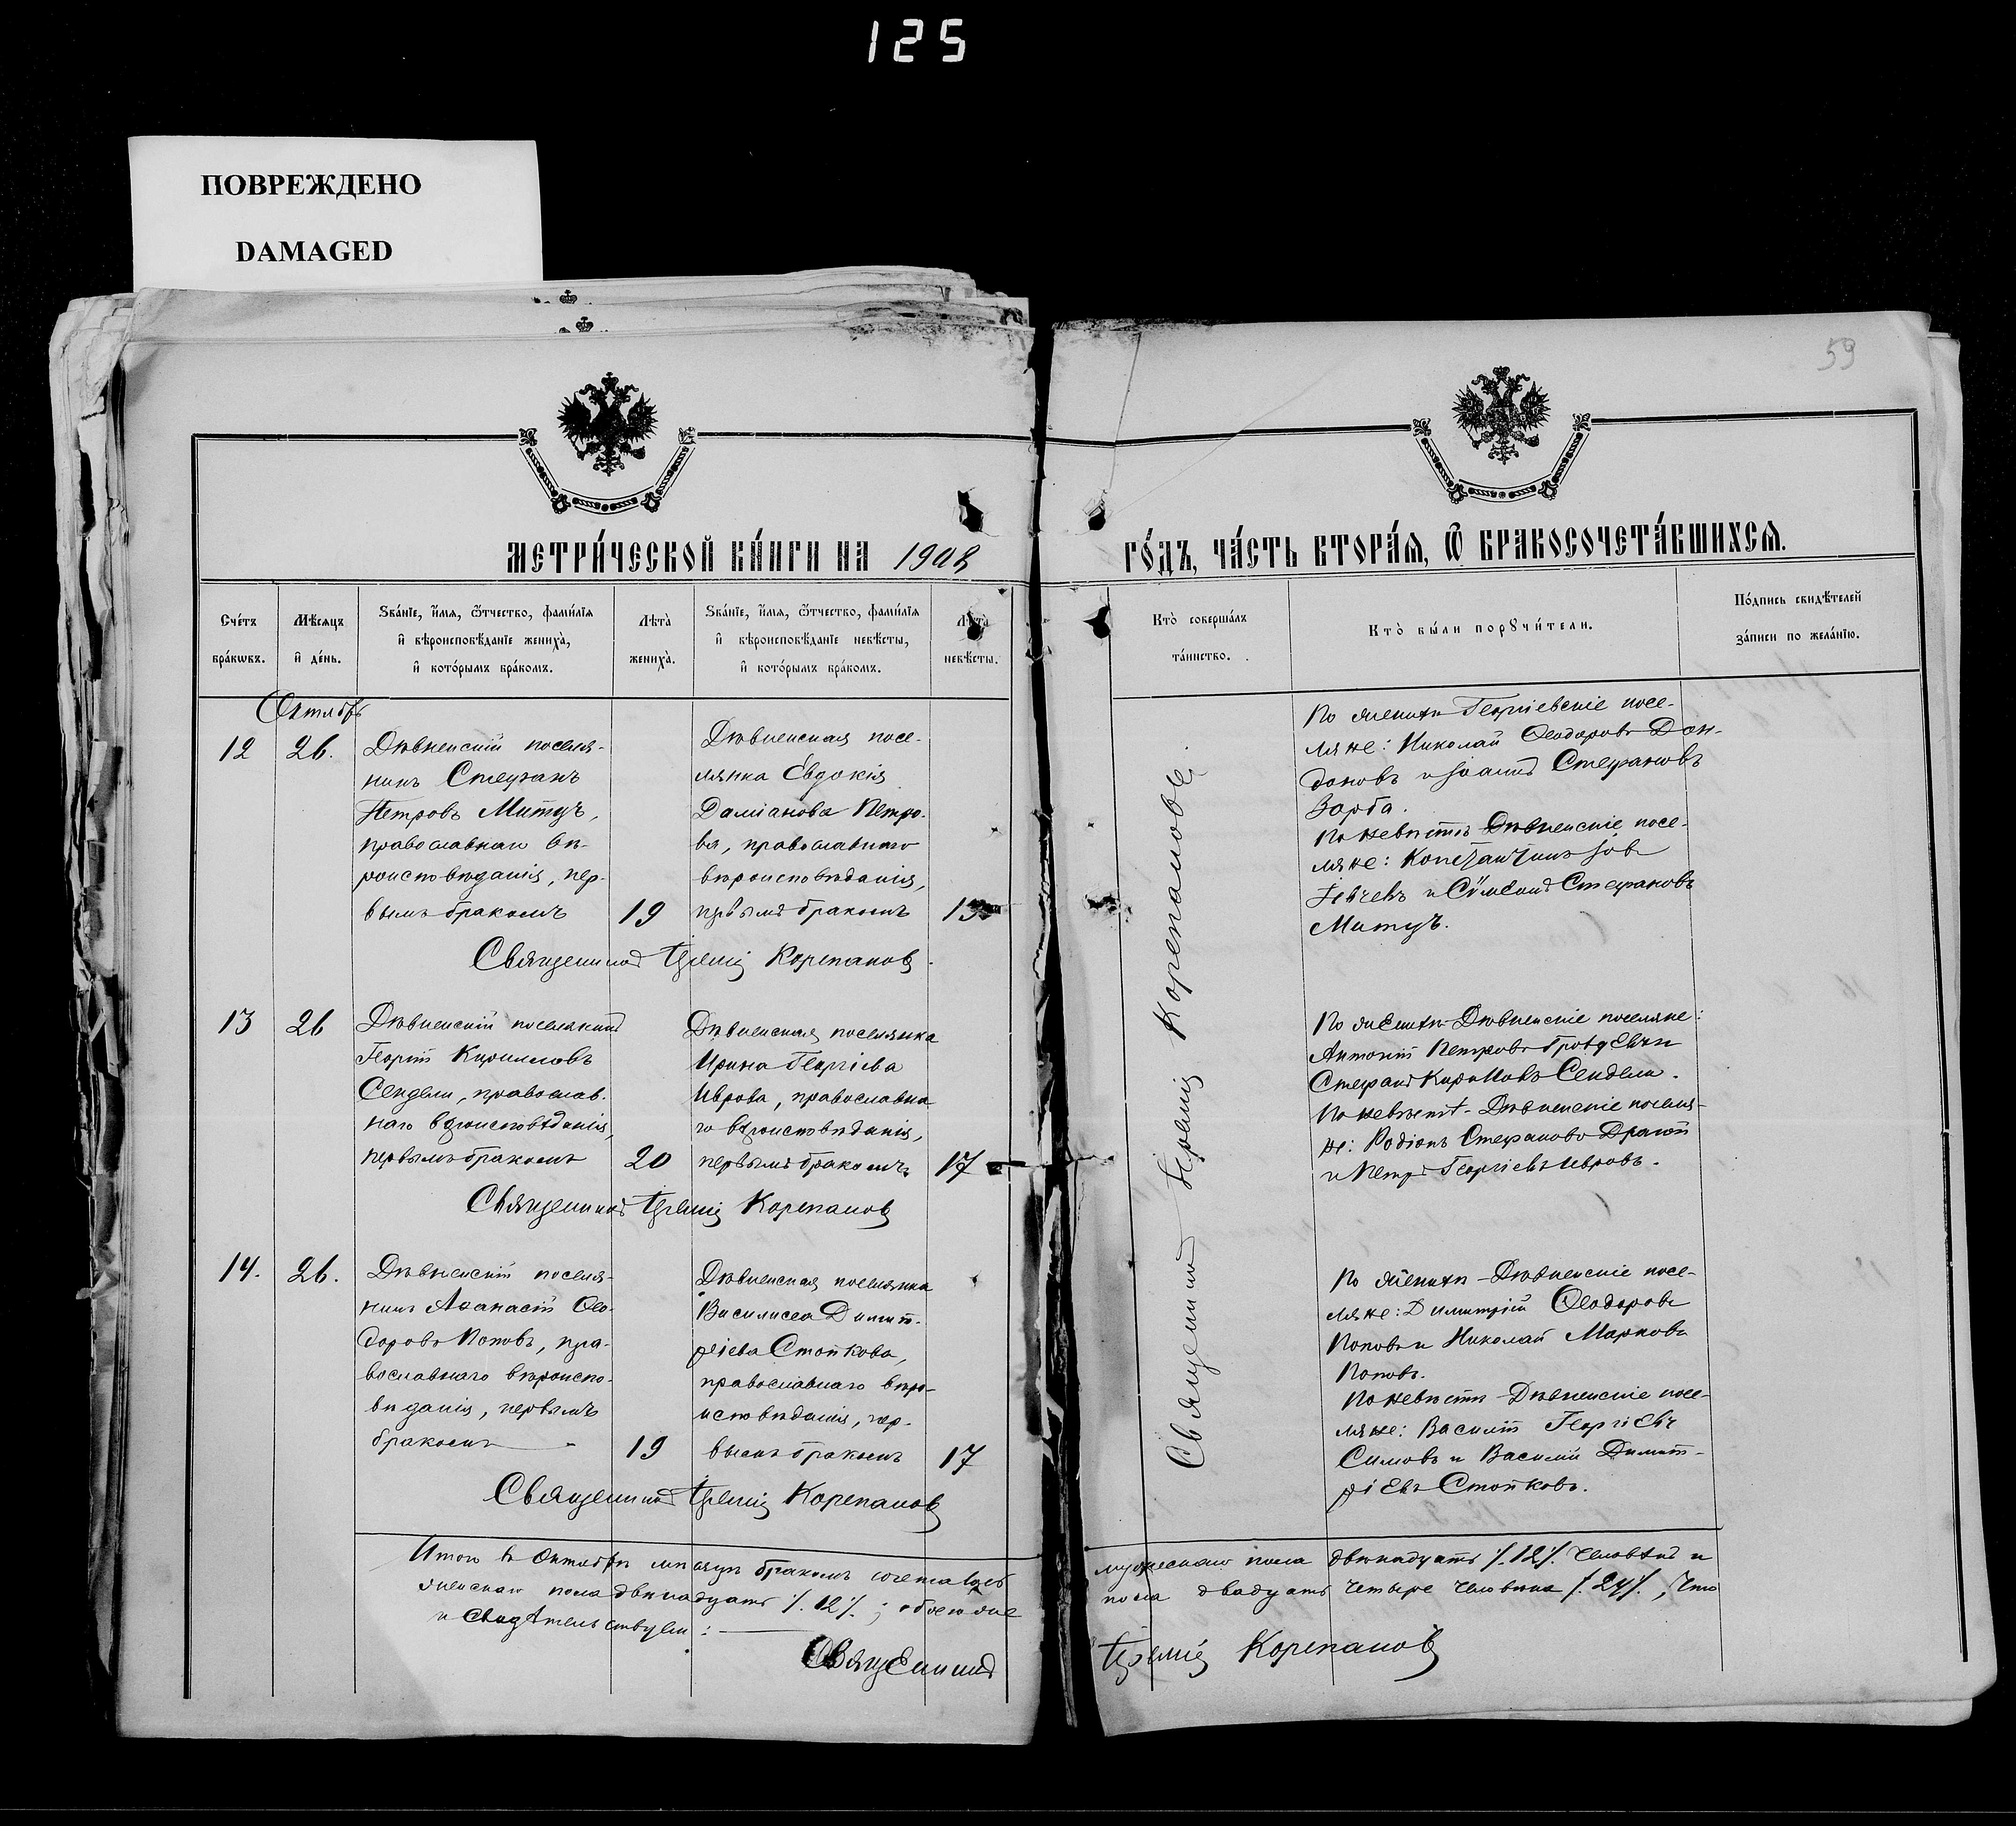 125
ПОВРЕЖДЕНО
DAMAGED
59
МЕТРИ́ЧЕСКОЙ КНИ́ГИ НА 1908 ГО́ДЪ, ЧА́СТЬ ВТОРА́Ѧ, Ѿ БРАКОСОЧЕТА́ВШИХСѦ.
Сче́тъ
бра́кѡвъ.
Мѣ́сяцъ
и҆ де́нь.
Ѕва́нїе, и҆́мя, ѻ҆́тчество, фами́лїя
и҆ вѣроисповѣ́данїе жениха̀,
и҆ кото́рымъ бра́комъ.
Лѣта̀
жениха̀.
Ѕва́нїе, и҆́мя, ѻ҆́тчество, фами́лїя
и҆ вѣроисповѣ́данїе невѣ́сты,
и҆ кото́рымъ бра́комъ.
Лѣта̀
невѣ́сты.
Кто̀ соверша́лъ
та́инство.
Кто̀ бы́ли порꙋчи́тели.
По́дпись свидѣ́телей
за́писи по жела́нїю.
Октябрь
12
26.
Дѣвненскій поселя-
нинъ Стефанъ
Петровъ Митуъ,
православнаго вѣ-
роисповѣданія, пер-
вымъ бракомъ
19
Дѣвненская посе-
лянка Евдокія
Даміанова Петро-
ва, православнаго
вѣроисповѣданія,
первымъ бракомъ
Священникъ Іеремія Корепановъ.
По женихѣ Георгіевскіе посе-
ляне: Николай Ѳеодоровъ Дон-
доновъ и Іоаннъ Стефановъ
Зарба.
По невѣстѣ Дѣвненскіе посе-
ляне: Константинъ
и Сѵмеонъ Стефановъ
Митуъ.
13
26
Дѣвненскій поселянинъ
Георгій Кирилловъ
Сендели, православ-
наго вѣроисповѣданія,
первымъ бракомъ
20
Дѣвненская поселянка
Ирина Георгіева
Иврова, православна-
го вѣроисповѣданія,
первымъ бракомъ
17
Священникъ Іеремія Корепановъ
По женихѣ Дѣвненскіе поселяне:
Антоній Петровъ и
Стефанъ Кирилловъ Сендели.
По невѣстѣ Дѣвненскіе поселя-
не: Родіонъ Стефановъ Драгой
и Петръ Георгіевъ Ивровъ.
14.
26.
Дѣвненскій поселя-
нинъ Аѳанасій Ѳео-
доровъ Поповъ, пра-
вославнаго вѣроиспо-
вѣданія, первымъ
бракомъ
19
Дѣвненская поселянка
Василиса Димит-
ріева Стойкова,
православнаго вѣро-
исповѣданія, пер-
вымъ бракомъ
17
Священникъ Іеремія Корепановъ
По женихѣ Дѣвненскіе посе-
ляне: Димитрій Ѳеодоровъ
Поповъ и Николай Марковъ
Поповъ.
По невѣстѣ Дѣвненскіе посе-
ляне: Василій Георгіевъ
Симовъ и Василій Димит-
ріевъ Стойковъ.
Священникъ Іеремія Корепановъ.
Итого въ Октябрѣ мѣсяцѣ бракомъ сочетались мужескаго пола двѣнадцать /.12/. человѣкъ и
женскаго пола двѣнадцать /.12/.; обоего же пола двадцать четыре человѣка /.24/., что
и свидѣтельствуемъ:
Священникъ Іеремія Корепановъ